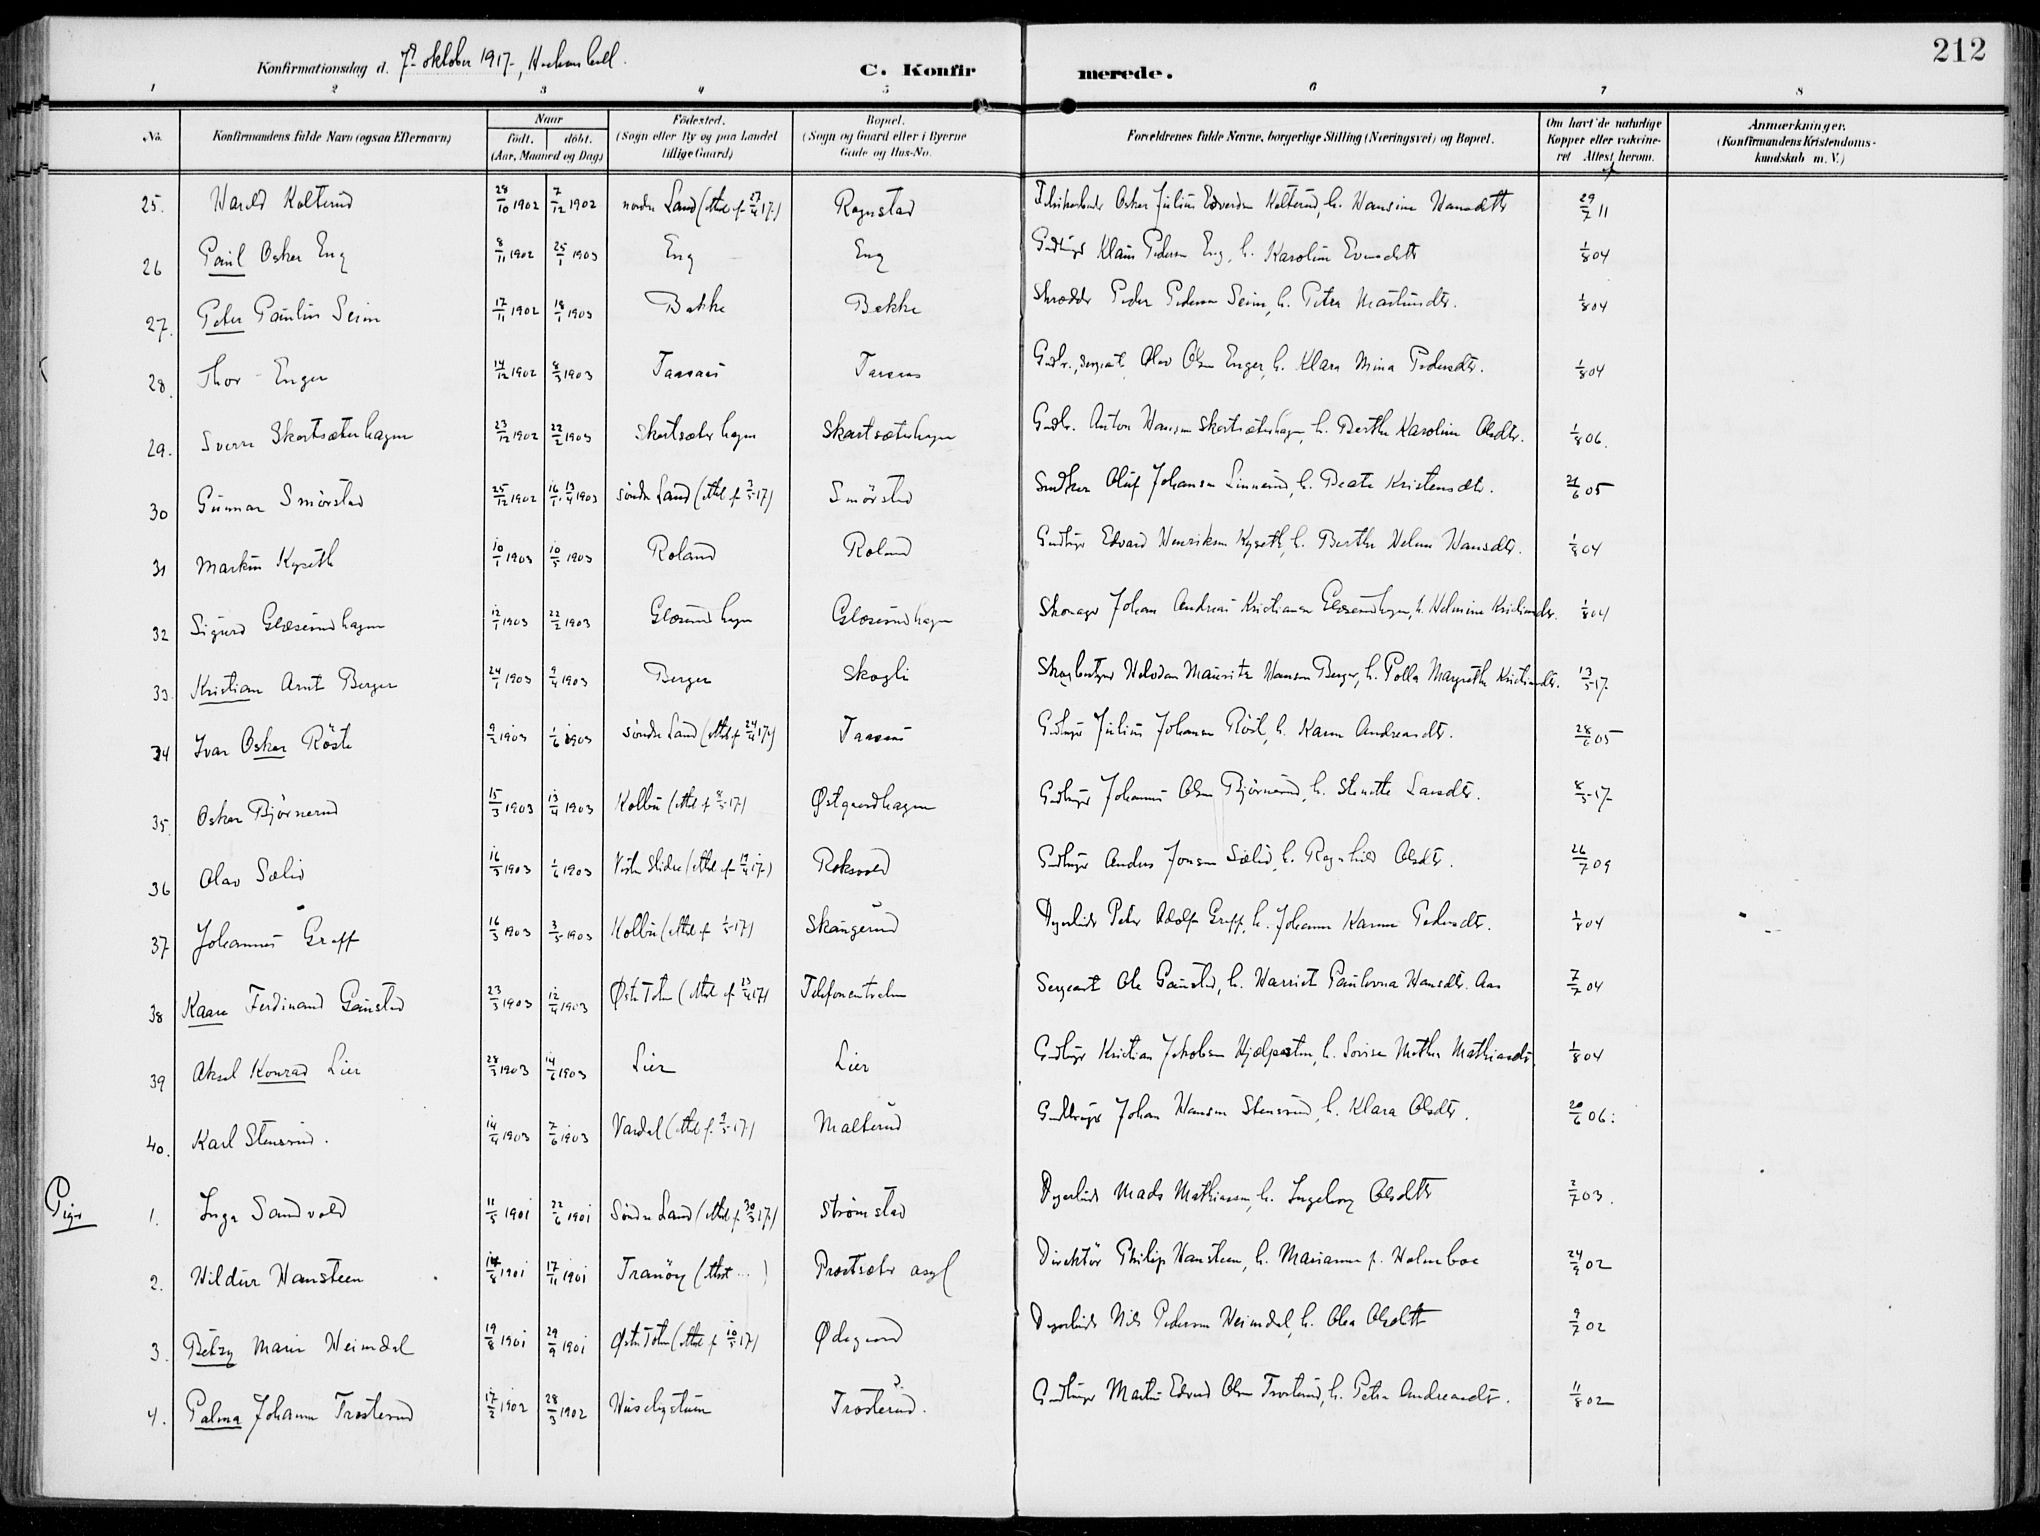 Konfirmationsdag d. 7de oktober 1917,
C. Konfirmerede.
212
1 2 3 4 5 6 7 8
No. Konfirmandens fulde Navn (ogsaa Efternavn) Naar født. døbt. (Aar, Maaned og Dag) Fødested. (Sogn eller By og paa Landet tillige Gaard) Bopæl. (Sogn og Gaard eller i Byerne Gade og Hus-No. Forældrenes fulde Navne, borgerlige Stilling (Næringsvei) og Bopæl. Om havt de naturlige Kopper eller vakcineret Attest herom. Anmærkninger. (Konfirmandens Kristendomskundskab m. V.)
25. Harald Kolterud 28/10 1902 7/12 1902 nordre Land (Attest af 27/4 17) Rognstad Oskar Julius Edvardsen Kolterud, h. Hansine Hansdtr 29/7 11
26 Paul Oskar Eng 8/11 1902 25/1 1903 Eng Eng Gaardbruger Klaus Pedersen Eng, h. Karoline Evensdtr 1/8 04
27. Peter Paulin Seim 17/11 1902 18/1 1903 Bakke Bakke Skrædder Peder Pedersen Seim, h. Petra Martinsdtr. 1/8 04
28. Thor Enger 14/12 1902 8/3 1903 Gaardbr., sergeant Olav Olsen Enger, h. Klara Mina Pedersdtr. 1/8 04
29. Sverre Skartsæterhagen 23/12 1902 22/2 1903 Skartsæterhagen Skartsæterhagen Gaardbr. Anton Hansen Skartsæterhagen, h. Berthe Karoline Olsdtr. 1/8 06.
30 Gunnar Smørstad 25/12 1902 13/4 1903 søndre Land (Attest af 3/5 17) Smørstad Oluf Johansen Linnerud, h. Beate Kristensdtr. 21/6 05
31 Markus Kyseth 10/1 1903 10/5 1903 Roland Roland Gaardbruger Edvard Henriksen Kyseth, h. Berthe Helene Hansdtr. 1/8 04
32 Sigurd Glæserudhagen 12/1 1903 22/2 1903 Glæserudhagen Glæserudhagen Skomager Johan Andreas Kristiansen Glæserudhagen, h. Helmine Kristiansdtr. 1/8 04
33. Kristian Arnt Berger 24/1 1903 9/4 1903 Berger Skogli Skogbetjent Halvdan Mauritz Hansen Berger, h. Polla Margrethe Kristiansdtr. 13/5 17
34 Ivar Oskar Röste 9/2 1903 1/6 1903 søndre Land (Attest af 24/4 17) Gaardbruger Julius Johansen Röste, h. Karen Andreasdtr. 28/6 05
35. Oskar Bjørnerud 15/3 1903 13/4 1903 Kolbu (Attest af 8/5 17) Østgaardhagen Gaardbruger Johannes Olsen Bjørnerud, h. Stinette Larsdtr. 8/5 17
36 Olav Sælid 16/3 1903 1/6 1903 Vestre Slidre (Attest af 19/4 17) Roksvold Gaardbruger Anders Jonsen Sælid, h. Ragnhild Olsdtr. 26/7 09
37 Johannes Greff 16/3 1903 3/5 1903 Kolbu (Attest af 1/5 17) Skaugerud Dagarbeider Peter Adolf Greff, h. Johanne Karine Pedersdtr. 1/8 04
38 Kaare Ferdinand Gaustad 23/3 1903 12/4 1903 Østre Toten (Attest af 23/4 17) Telefoncentralen Sergeant Ole Gaustad, h. Harriet Paulovna Hansdtr. Aas 7/7 04
39 Aksel Konrad Lier 28/3 1903 14/6 1903 Lier Lier Gaardbruger Kristian Jakobsen Hjelpesten, h. Lovise Mathea Mathiasdtr. 1/8 04
40. Karl Stensrud. 14/4 1903 7/6 1903 Vardal (Attest af 9/5 17) Malterud Gaardbruger Johan Hansen Stensrud, h. Klara Olsdtr. 20/6 06.
Piger
1. Inga Sandvold 11/5 1901 22/6 1901 Søndre Land (Attest af 30/3 17) Strømstad Dagarbeider Mads Mathiassen, h. Ingeborg Olsdtr 2/7 03.
2. Hildur Hansteen 14/8 1901 17/11 1901 Tranöy (Attest ...) Prestsæter asyl Direktör Philip Hansteen, h. Marianne f. Holmboe 24/9 02
3. Betzy Marie Heimdal 19/8 1901 29/9 1901 Østre Toten (Attest af 10/5 17) Ødegaard Dagarbeider Nils Pedersen Heimdal, h. Olea Olsdtr 9/7 02
4. Palma Johanne Trosterud 17/2 1902 28/3 1902 Husebystuen Trosterud. Gaardbruger Martin Edvard Olsen Trosterud, h. Petra Andreasdtr. 11/8 02